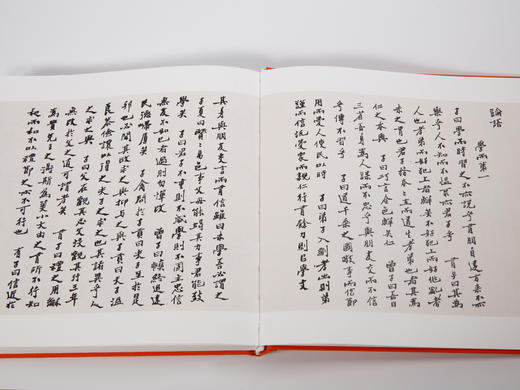 論語
學而第一
子曰學而時習之不亦說乎有朋自遠方來不亦
樂乎人不知而不慍不亦君子乎 有子曰其為
人也孝弟而好犯上者鮮矣不好犯上而好作亂者
未之有也君子務本本立而道生孝弟也者其為
仁之本與 子曰巧言令色鮮矣仁 曾子曰吾日
三省吾身為人謀而不忠乎與朋友交而不信
乎傳不習乎 子曰道千乘之國敬事而信節
用而愛人使民以時 子曰弟子入則孝出則弟
謹而信汎愛眾而親仁行有餘力則以學文
其身與朋友交言而有信雖曰未學吾必謂之
子夏曰賢賢易色事父母能竭其力事君能致
學矣 子曰君子不重則不威學則不固主忠信
無友不如己者過則勿憚改 曾子曰慎終追遠
民德歸厚矣 子禽問於子貢曰夫子至於是
邦也必聞其政求之與抑與之與子貢曰夫子溫
良恭儉讓以得之夫子之求之也其諸異乎人
之求之與 子曰父在觀其志父沒觀其行三年
無改於父之道可謂孝矣 有子曰禮之用和
為貴先王之道斯為美小大由之有所不行知
和而和不以禮節之亦不可行也 有子曰信近於